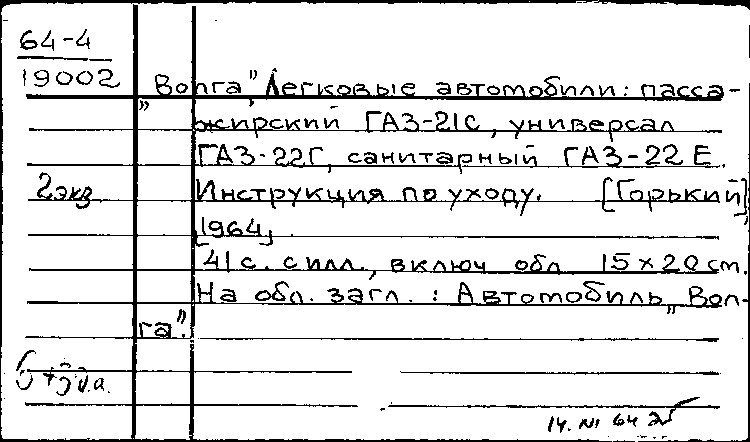 64-4
19002
„Волга", Легковые автомобили: пасса-
жирский ГАЗ-21С, универсал
ГАЗ-22Г, санитарный ГАЗ-22Е.
2 экз
Инструкция по уходу. [Горький],
[1964].
41 с. с илл., включ обл 15 x 20 cm.
На обл. загл.: Автомобиль „Вол-
га".
64